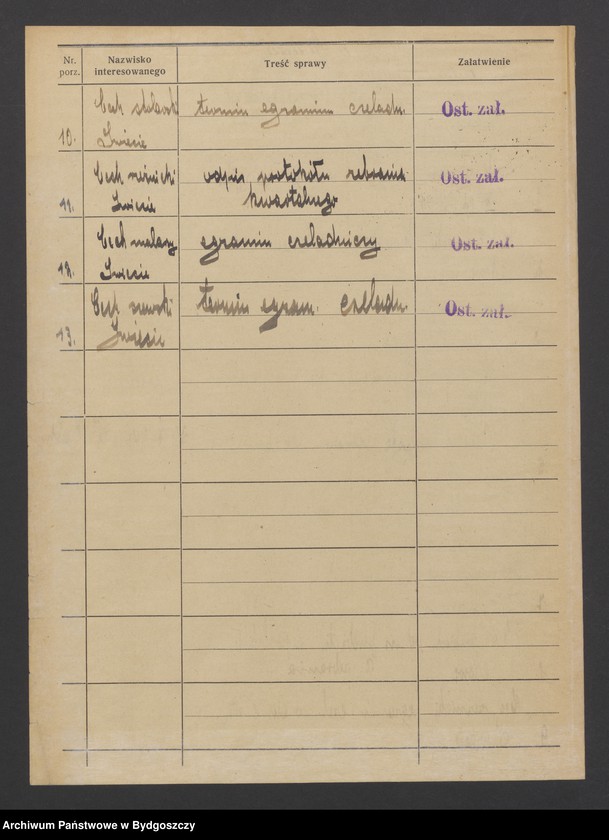 Nr. porz.
Nazwisko interesowanego
Treść sprawy
Załatwienie
10.
Cech stolarski
Świecie
termin egzaminu czeladn.
Ost. zał.
11.
Cech
Świecie
odpis protokółu zebrania
kwartalnego
Ost. zał.
12.
Cech malarzy
Świecie
egzamin czeladniczy
Ost. zał.
13.
Cech
Świecie
termin egzam. czeladn.
Ost. zał.
Archiwum Państwowe w Bydgoszczy